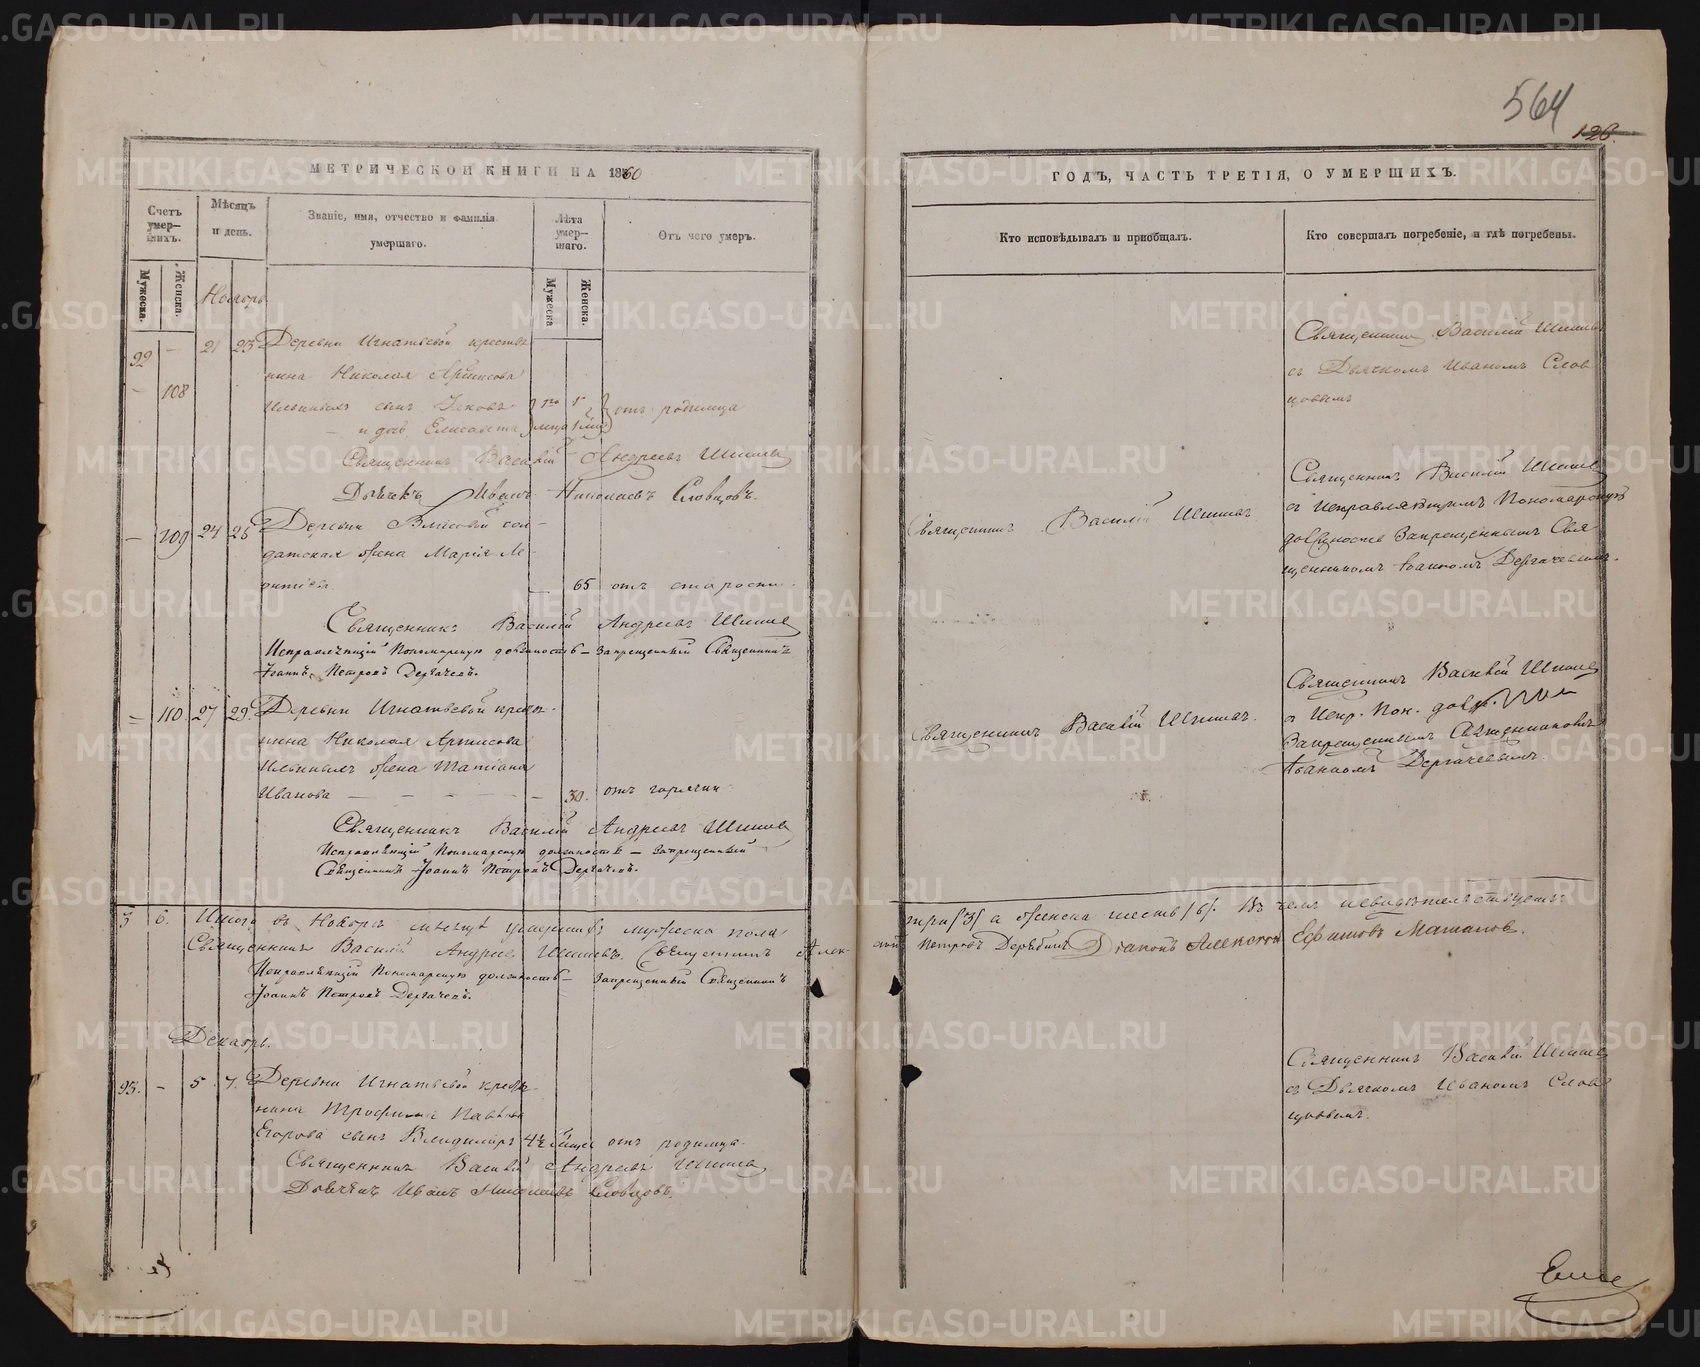 564
126.
МЕТРИЧЕСКОЙ КНИГИ НА 1860
ГОДЪ, ЧАСТЬ ТРЕТІЯ, О УМЕРШИХЪ.
Счетъ умер-шихъ.
Мѣсяцъ и день.
Званіе, имя, отчество и фамилія умершаго.
Лѣта умер-шаго.
Отъ чего умеръ.
Кто исповѣдывалъ и пріобщалъ.
Кто совершалъ погребеніе, и гдѣ погребены.
Мужеска.
Женска.
Мужеска
Женска.
Ноябрь
92 — 21 23 Деревни Игнатьевой крестья
— 108 нина Николая
Ильиныхъ сынъ Яковъ
и дочь Елисавета
отъ родимца
Священникъ Василій Андреевъ
Дьячекъ Иванъ Николаевъ Словцовъ.
Священникъ Василій
съ Дьячкомъ Иваномъ Слов
цовымъ
— 109 24 26 Деревни сол-
датская жена Марія Ле-
онтіева. 65 отъ старости.
Священникъ Василій Андреевъ
Исправляющій Пономарскую должность — Запрещенный Священникъ
Іоаннъ Петровъ Дергачевъ.
Священникъ Василій
Священникъ Василій
съ Исправляющимъ Пономарскую
должность Запрещеннымъ Свя
щенникомъ Іоанномъ Дергачевымъ.
— 110 27 29. Деревни Игнатьевой крестья-
нина Николая
Ильиныхъ жена Татіана
Иванова — — — — — 30. отъ горячки
Священникъ Василій Андреевъ
Исправляющій Пономарскую должность — Запрещенный
Священникъ Іоаннъ Петровъ Дергачевъ.
Священникъ Василій
Священникъ Василій
съ Испр. Пон. долж.
Запрещеннымъ Священникомъ
Іоанномъ Дергачевымъ.
3 6. Итого въ Ноябрѣ мѣсяцѣ умершихъ мужеска пола
три /3/ а женска шесть /6/. Въ чемъ и свидѣтельствуемъ:
Священникъ Василій Андреевъ Священникъ Алек-
сѣй Петровъ Діаконъ Алексѣй Ефимовъ
Исправляющій Пономарскую должность — Запрещенный Священникъ
Іоаннъ Петровъ Дергачевъ.
Декабрь.
93. — 5 7. Деревни Игнатьевой крестья-
нина Трофима Павлова
Егорова сынъ Владимиръ отъ родимца.
Священникъ Василій Андреевъ
Дьячекъ Иванъ Николаевъ Словцовъ.
Священникъ Василій
съ Дьячкомъ Иваномъ Слов
цовымъ.
METRIKI.GASO-URAL.RU